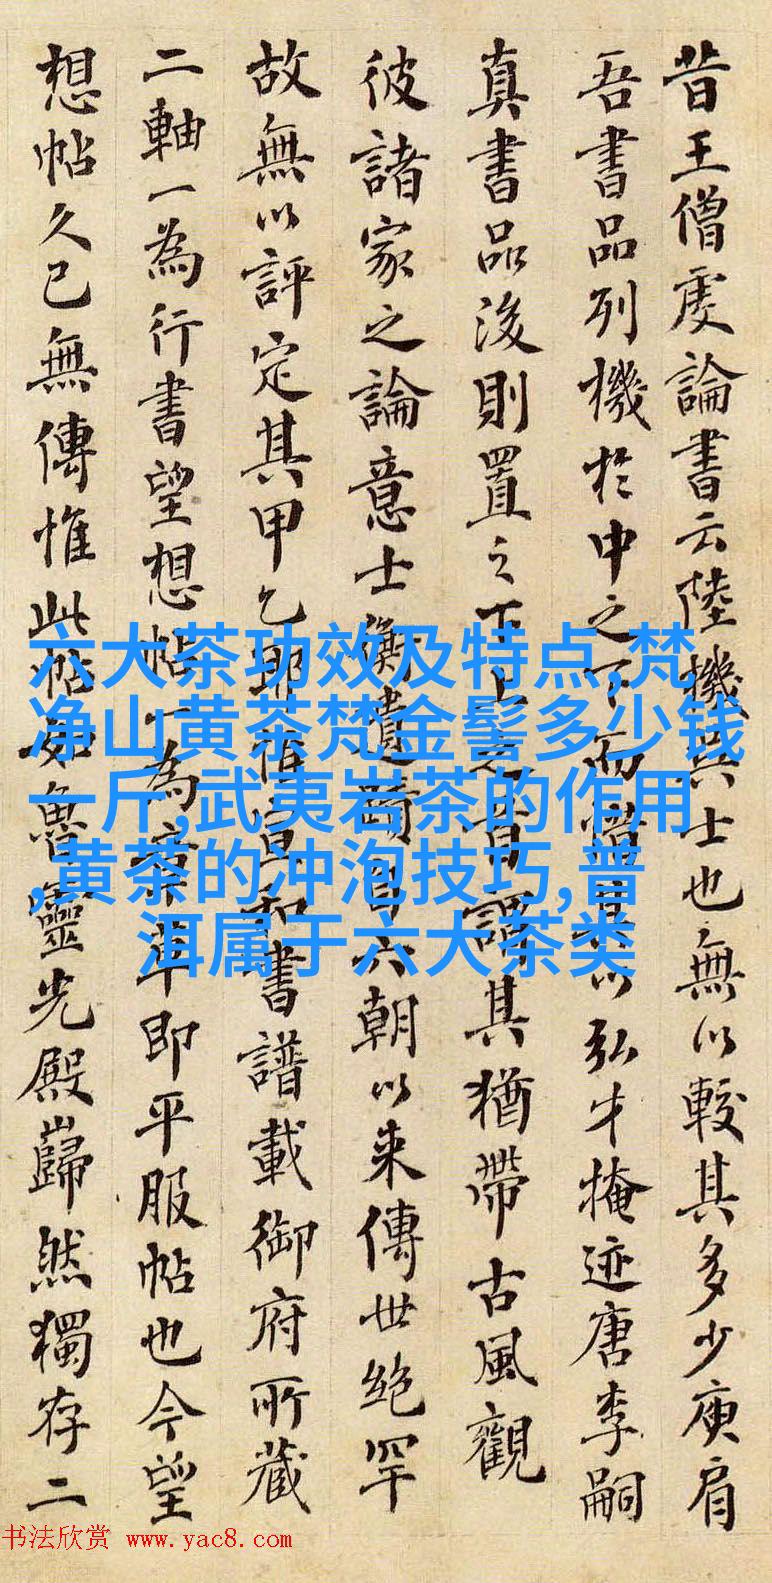 昔王僧虔論書云陸機吳士也無以較其多少庾肩
吾書品列機於中之下而惜其以弘才掩迹唐李嗣
真書品後則置之下上之首謂其猶帶古風觀
彼諸家之論意士衡遺蹟自六朝以来傳世絕罕
故無以評定其甲乙耶惟宣和書譜載御府所藏
二軸一為行書望想帖一為章草即平服帖也今望
想帖久已無傳惟此帖如魯靈光殿巋然獨存二
六大茶功效及特点,梵
净山黄茶梵金髻多少钱
一斤,武夷岩茶的作用
,黄茶的冲泡技巧,普
洱属于六大茶类
书法欣赏 www.yac8.com